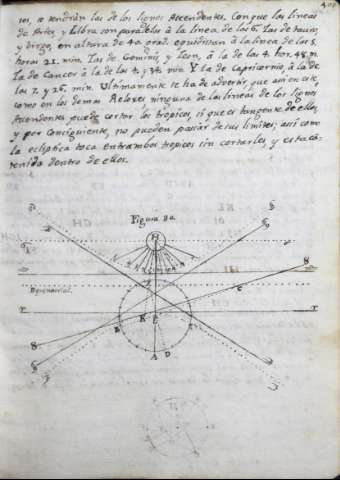 ios, se tendrán las de los signos Ascendentes. Con que las lineas
de Aries, y Libra son paralelos à la linea de las 6. Las de tauro,
y virgo, en altura de 40 grad. equidistan à la linea de las 5
horas 21. min. Las de Geminis, y Leon, à la de las 4. hor. 48. m.
La de Cancer à la de las 4. y 34. min. Y la de Capricornio à la de
las 7. y 26. min. Ultimamente se ha de advertir, que assi en este,
como en los demas Reloxes ninguna de las lineas de los signos
Ascendentes puede cortar los tropicos, si que es tangente de ellos,
y por consiguiente, no pueden passar de sus limites; assi como
la ecliptica toca entrambos tropicos sin cortarles, y esta co-
tenida dentro de ellos.
Figura 80.
H
Equinoctial.
C
B
K
E
A
D